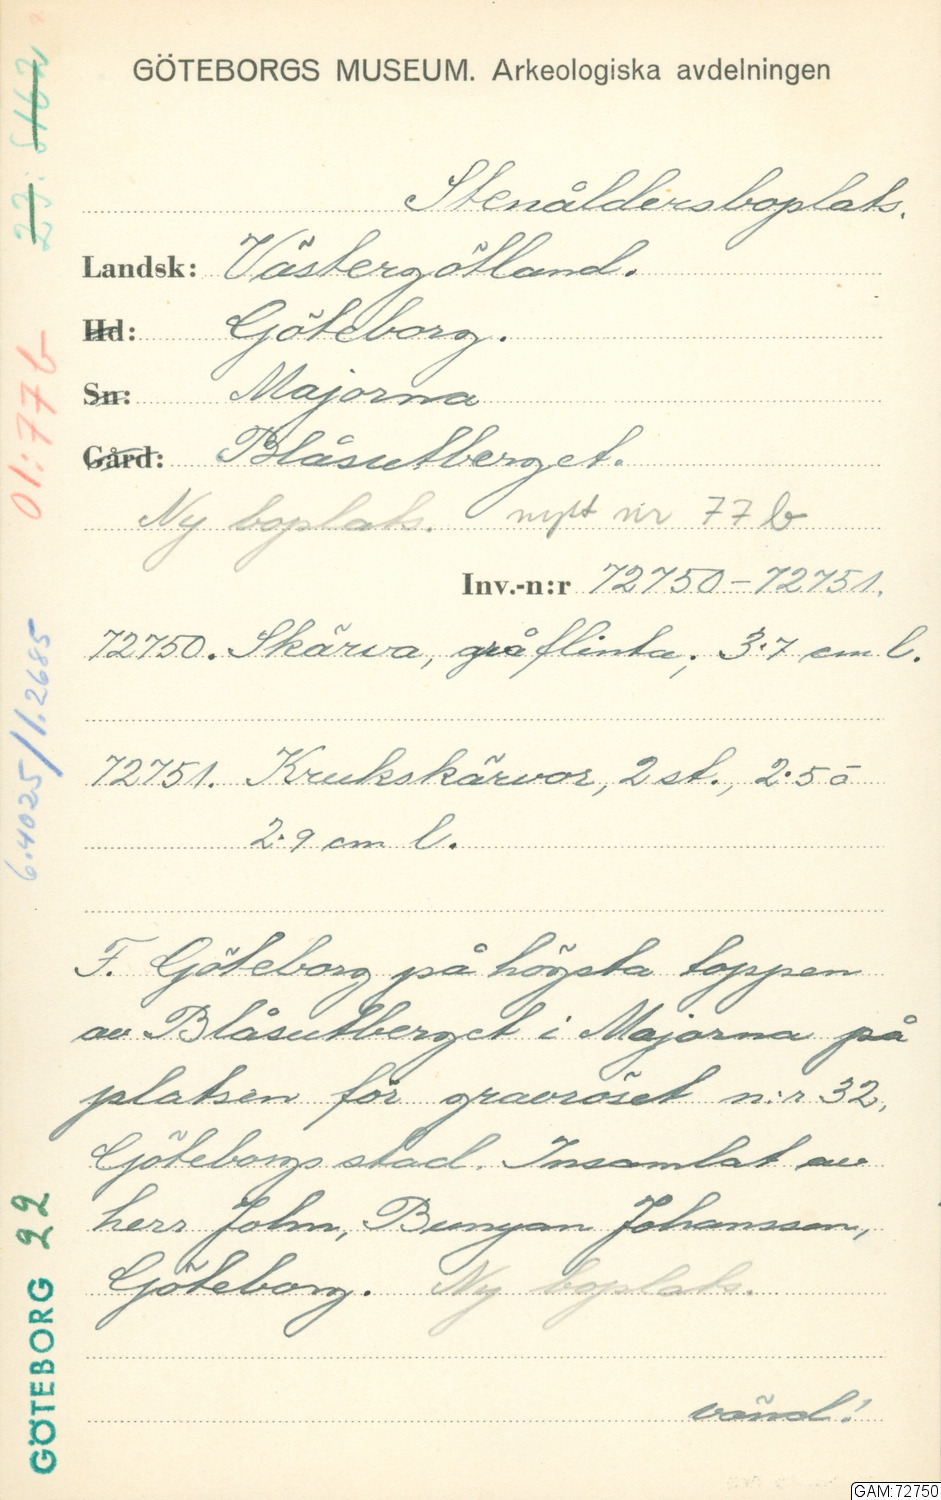 GÖTEBORGS MUSEUM. Arkeologiska avdelningen
Stenåldersboplats.
Landsk: Västergötland.
Hd: Göteborg.
Sn: Majorna
Gård: Blåsutberget.
Ny boplats. nytt nr 77b
Inv.-n:r 72750-72751.
72750. Skärva, grå flinta, 3.7 cm l.
72751. Krukskärvor, 2 st., 2.5 o
2.9 cm l.
F. Göteborg på högsta toppen
av Blåsutberget i Majorna på
platsen för gravröset n:r 32,
Göteborgs stad. Insamlat av
herr John, Bunyan Johansson,
Göteborg. Ny boplats.
vänd!
01:77b
6.4025/1.2685
GÖTEBORG 22
GAM:72750